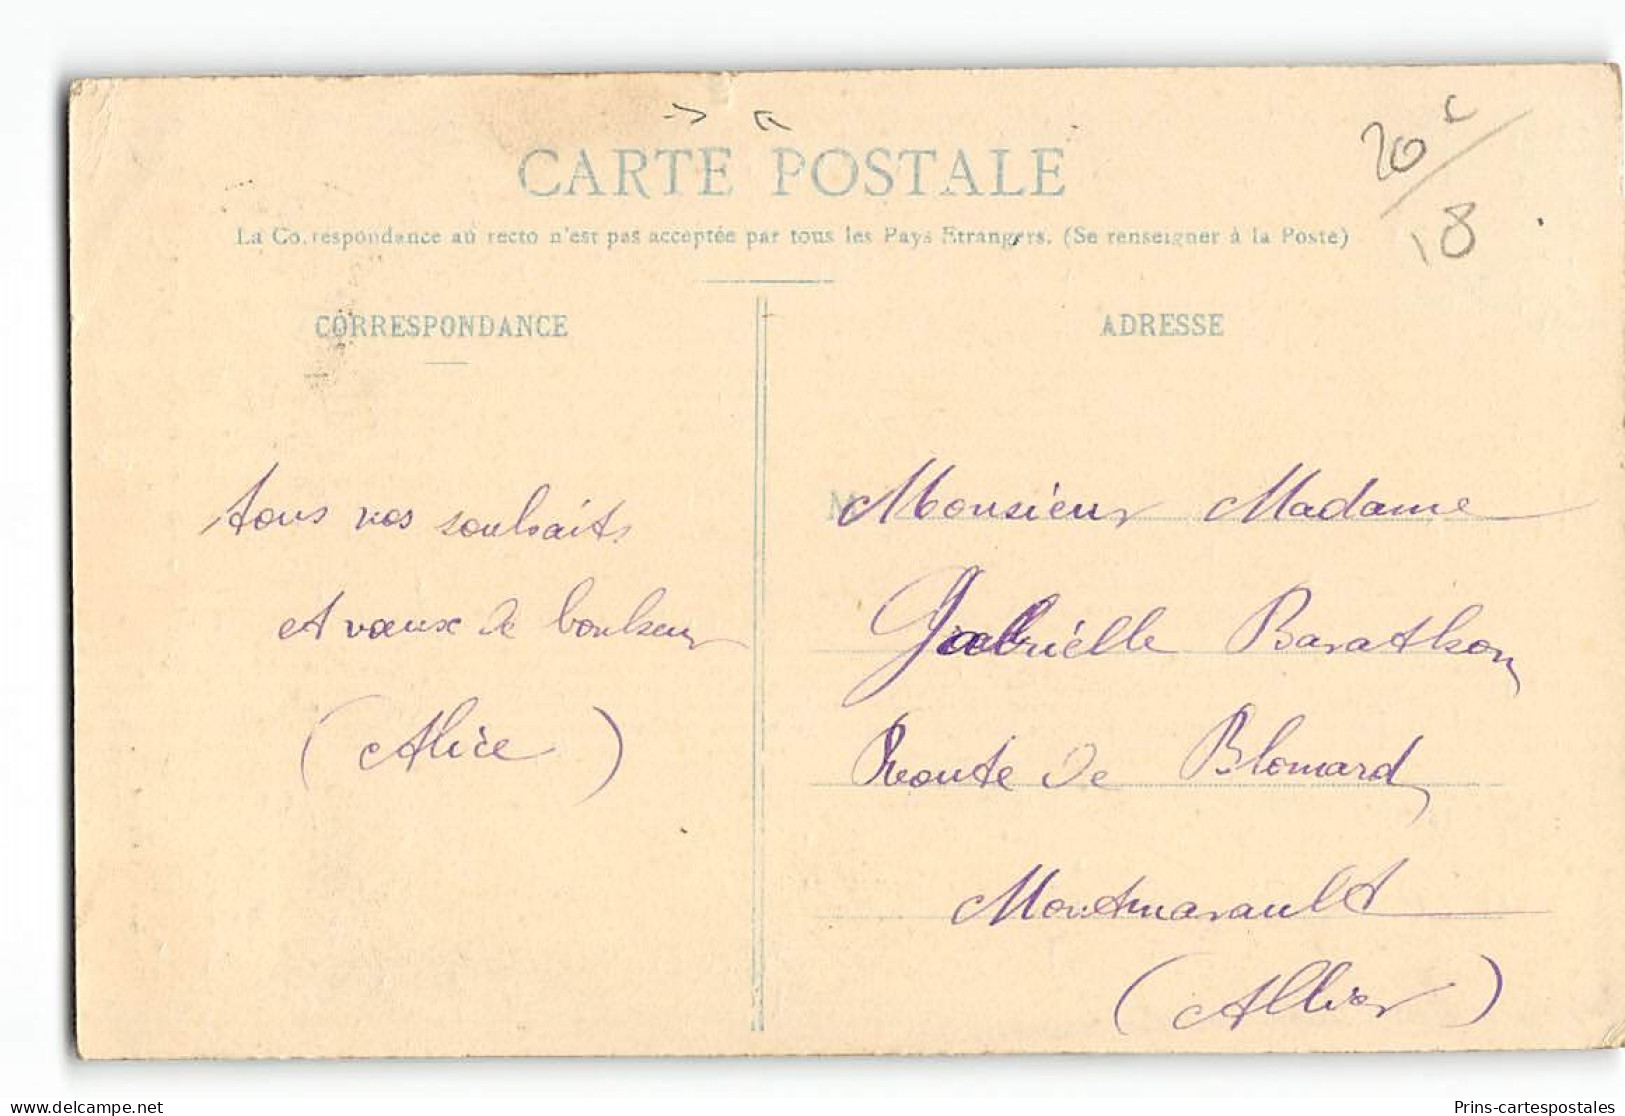 20c
18
CARTE POSTALE
La Correspondance au recto n'est pas acceptée par tous les Pays Etrangers. (Se renseigner à la Poste)
CORRESPONDANCE
tous nos souhaits
et vœux de bonheur
(Alice)
ADRESSE
M
Monsieur Madame
Gabriélle Barathon
Route de Blomard
Montmarault
(Allier)
www.delcampe.net
Prins-cartespostales